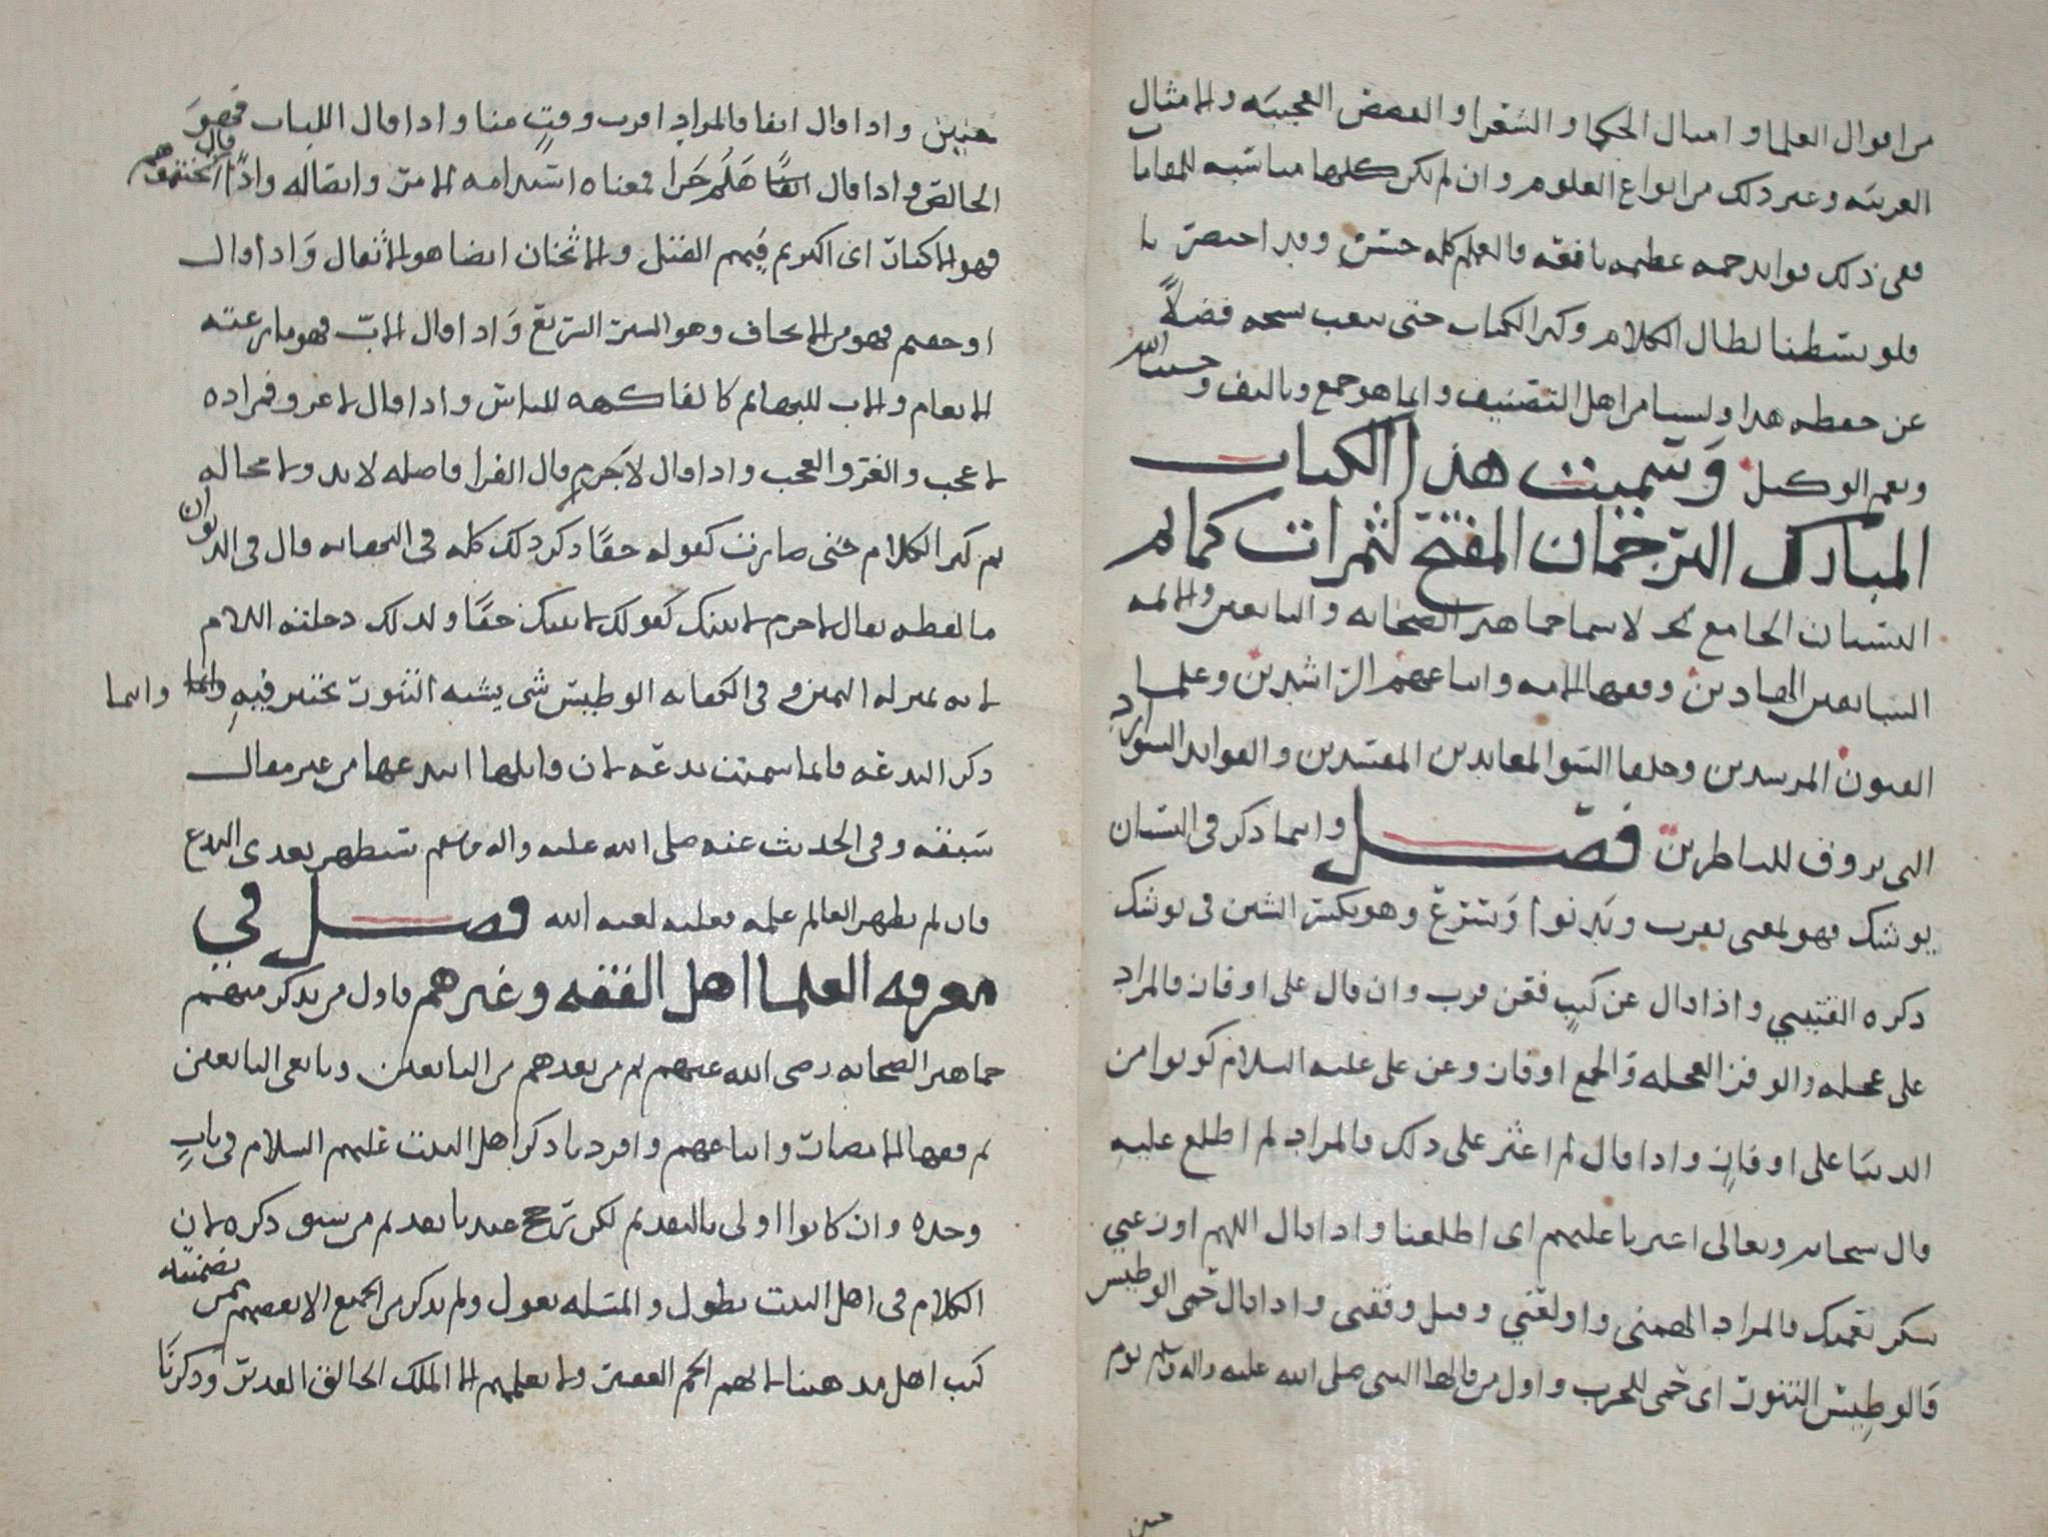 من اقوال العلما وامثال الحكما والشعرا والقصص العجيبه والامثال
الغريبه وغير ذلك من انواع العلوم وان لم تكن كلها مناسبه للمقامات
ففي ذلك فوايد جمه عظيمه نافعه فالعلم كله حسن وقد اختصرنا
فلو بسطنا لطال الكلام وكبر الكتاب حتى يتعب نسخه فضلاً
عن حفظه هذا ولسنا من اهل التصنيف وانما هو جمع وتاليف وحسبنا الله
ونعم الوكيل وسميت هذا الكتاب
المبارك الترجمان المفتح لثمرات كمائم
البستان الجامع لاسما جماهير الصحابه والتابعين والائمه
السابقين الهادين وفقها الامه واتباعهم الراشدين وعلما
الفنون المرسدين وخلفا السو المعاندين المعتدين والفوايد الشوارد
التي تروق للناظرين فصل وانما ذكر في البستان
يوشك فهو بمعنى يقرب ويدنوا ويسرع وهو بكسر الشين في يوشك
ذكره القتيبي واذا قال عن كثب فعن قرب وان قال على اوفاز فالمراد
على عجله والوفز العجله والجمع اوفاز وعن علي عليه السلام كونوا من
الدنيا على اوفاز واذا قال لم اعثر على ذلك فالمراد لم اطلع عليه
قال سبحانه وتعالى اعثرنا عليهم اي اطلعنا واذا قال اللهم اوزعني
شكر نعمتك فالمراد الهمني واولعني وقيل وفقني واذا قال حمي الوطيس
فالوطيس التنور اي حمي للحرب واول من قالها النبي صلى الله عليه واله وسلم يوم
حنين
حنين واذا قال انفا فالمراد اقرب وقت منا واذا قال اللباب فهو
الخالص واذا قال هلم جرا فمعناه استدامه الامر واتصاله واذا قال اثخنتموهم
فهو الاكثار اي اكثرتم فيهم القتل والاثخان ايضا هو الاثقال واذا قال
اوجفتم فهو من الايجاف وهو السير السريع واذا قال الاب فهو ما رعته
الانعام والاب للبهايم كالفاكهه للناس واذا قال لا غرو فمراده
لا عجب والغرو العجب واذا قال لا جرم قال الفرا فاصله لا بد ولا محاله
ثم كثر الكلام حتى صارت كقوله حقا ذكر ذلك كله في النهايه قال في الديوان
ما لفظه يقال لا جرم لاتينك كقولك لاتينك حقا ولذلك دخلته اللام
لانه بمنزله اليمين وفي الكفايه الوطيس شي يشبه التنور يختبز فيه وانما
ذكر البدعه فانما سميت بدعه لان قايلها ابتدعها من غير مقال
سبقه وفي الحديث عنه صلى الله عليه واله وسلم ستظهر بعدي البدع
فان لم يظهر العالم علمه فعليه لعنه الله فصل في
معرفه العلما اهل الفقه وغيرهم فاول من يذكر منهم
جماهير الصحابه رضي الله عنهم ثم من بعدهم من التابعين وتابعي التابعين
ثم فقها الامصار واتباعهم وافردنا ذكر اهل البيت عليهم السلام في باب
وحده وان كانوا اولى بالتقديم لكن ترجح عندنا تقديم من سبق ذكره لان
الكلام في اهل البيت يطول والمسله تعول ولم يذكر من الجميع الا بعضهم ممن تضمنته
كتب اهل مذهبنا لانهم الجم الغفير ولا يعلمهم الا الملك الخالق القدير وذكرنا